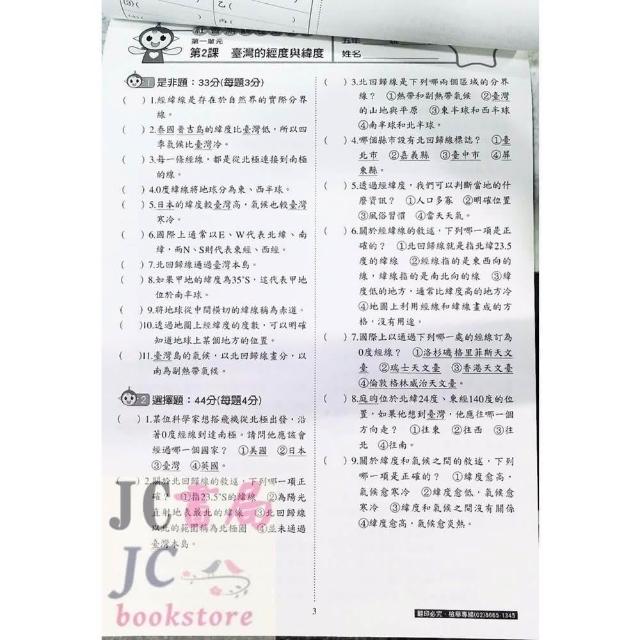 第一單元
第2課 臺灣的經度與緯度
姓名
1 是非題：33分(每題3分)
( )1.經緯線是存在於自然界的實際分界
線。
( )2.泰國普吉島的緯度比臺灣低，所以四
季氣候比臺灣冷。
( )3.每一條經線，都是從北極連接到南極
的線。
( )4.0度緯線將地球分為東、西半球。
( )5.日本的緯度較臺灣高，氣候也較臺灣
寒冷。
( )6.國際上通常以E、W代表北緯、南
緯，而N、S則代表東經、西經。
( )7.北回歸線通過臺灣本島。
( )8.如果甲地的緯度為35°S，這代表甲地
位於南半球。
( )9.將地球從中間橫切的緯線稱為赤道。
( )10.透過地圖上經緯度的度數，可以明確
知道地球上某個地方的位置。
( )11.臺灣島的氣候，以北回歸線畫分，以
南為副熱帶氣候。
2 選擇題：44分(每題4分)
( )1.某位科學家想搭飛機從北極出發，沿
著0度經線到達南極。請問他應該會
經過哪一個國家？ ①美國 ②日本
③臺灣 ④英國。
( )2.關於北回歸線的敘述，下列哪一項正
確？ ①指23.5°S的緯線 ②為陽光
直射地表最北的緯線 ③北回歸線
以北的範圍稱為北極圈 ④並未通過
臺灣本島。
( )3.北回歸線是下列哪兩個區域的分界
線？ ①熱帶和副熱帶氣候 ②臺灣
的山地與平原 ③東半球和西半球
④南半球和北半球。
( )4.哪個縣市設有北回歸線標誌？ ①臺
北市 ②嘉義縣 ③臺中市 ④屏
東縣。
( )5.透過經緯度，我們可以判斷當地的什
麼資訊？ ①人口多寡 ②明確位置
③風俗習慣 ④當天天氣。
( )6.關於經緯線的敘述，下列哪一項是正
確的？ ①北回歸線就是指北緯23.5
度的緯線 ②經線指的是東西向的
線，緯線指的是南北向的線 ③緯
度低的地方，通常比緯度高的地方冷
④地圖上利用經線和緯線畫成的方
格，沒有用途。
( )7.國際上以通過下列哪一處的經線訂為
0度經線？ ①洛杉磯格里菲斯天文
臺 ②瑞士天文臺 ③香港天文臺
④倫敦格林威治天文臺。
( )8.庭昀位於北緯24度、東經140度的位
置，如果他想到臺灣，他應往哪一個
方向走？ ①往東 ②往西 ③往
北 ④往南。
( )9.關於緯度和氣候之間的敘述，下列
哪一項是正確的？ ①緯度愈高，
氣候愈寒冷 ②緯度愈低，氣候愈
寒冷 ③緯度和氣候之間沒有關係
④緯度愈高，氣候愈炎熱。
JC書局
JC
bookstore
3
翻印必究‧檢舉專線(02)8665-1345